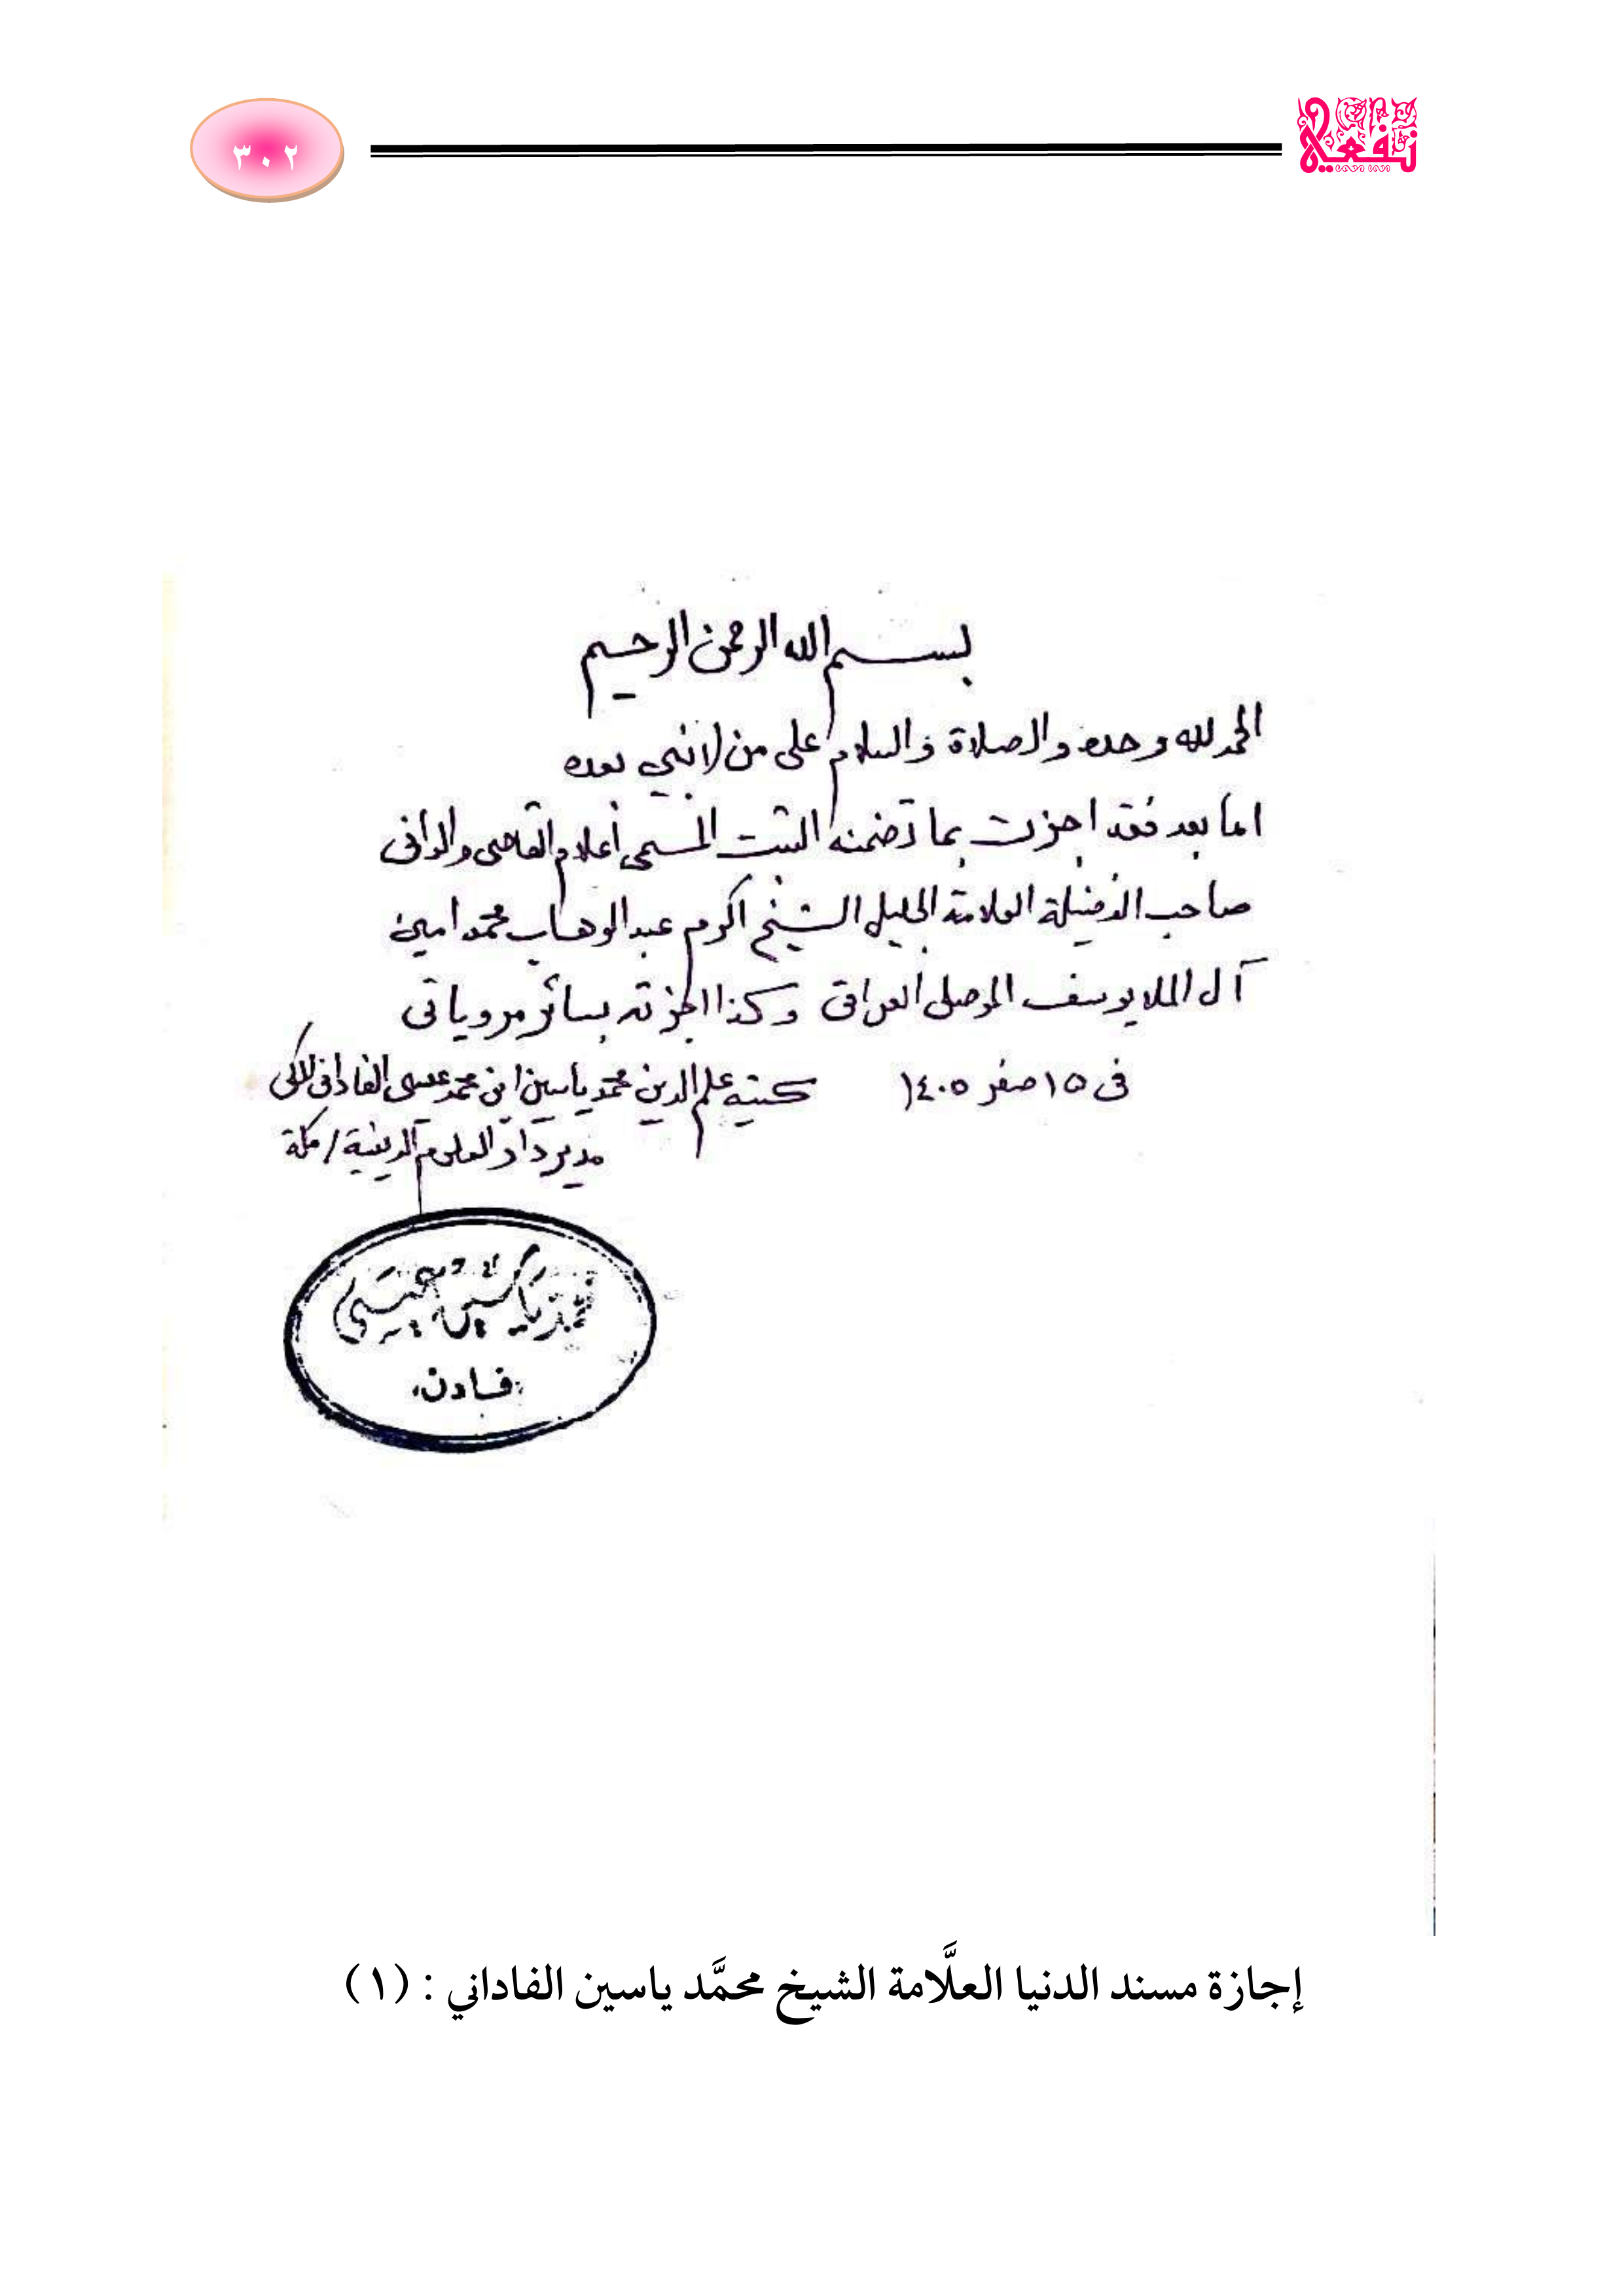 ٣٠٢
نفعية
بسم الله الرحمن الرحيم
الحمد لله وحده والصلاة والسلام على من لا نبي بعده
اما بعد فقد اجزت بما تضمنه الثبت المسمى أعلام القاصى والدانى
صاحب الفضيلة العلامة الجليل الشيخ اكرم عبد الوهاب محمد امين
آل الملا يوسف الموصلى العراقى وكذا اجزته بسائر مروياتى
فى ١٥ صفر ١٤٠٥
كتبه علم الدين محمد ياسين ابن محمد عيسى الفادانى المكى
مدير دار العلوم الدينية / مكة
محمد ياسين عيسى
فادن
إجازة مسند الدنيا العلَّامة الشيخ محمَّد ياسين الفاداني : (١)